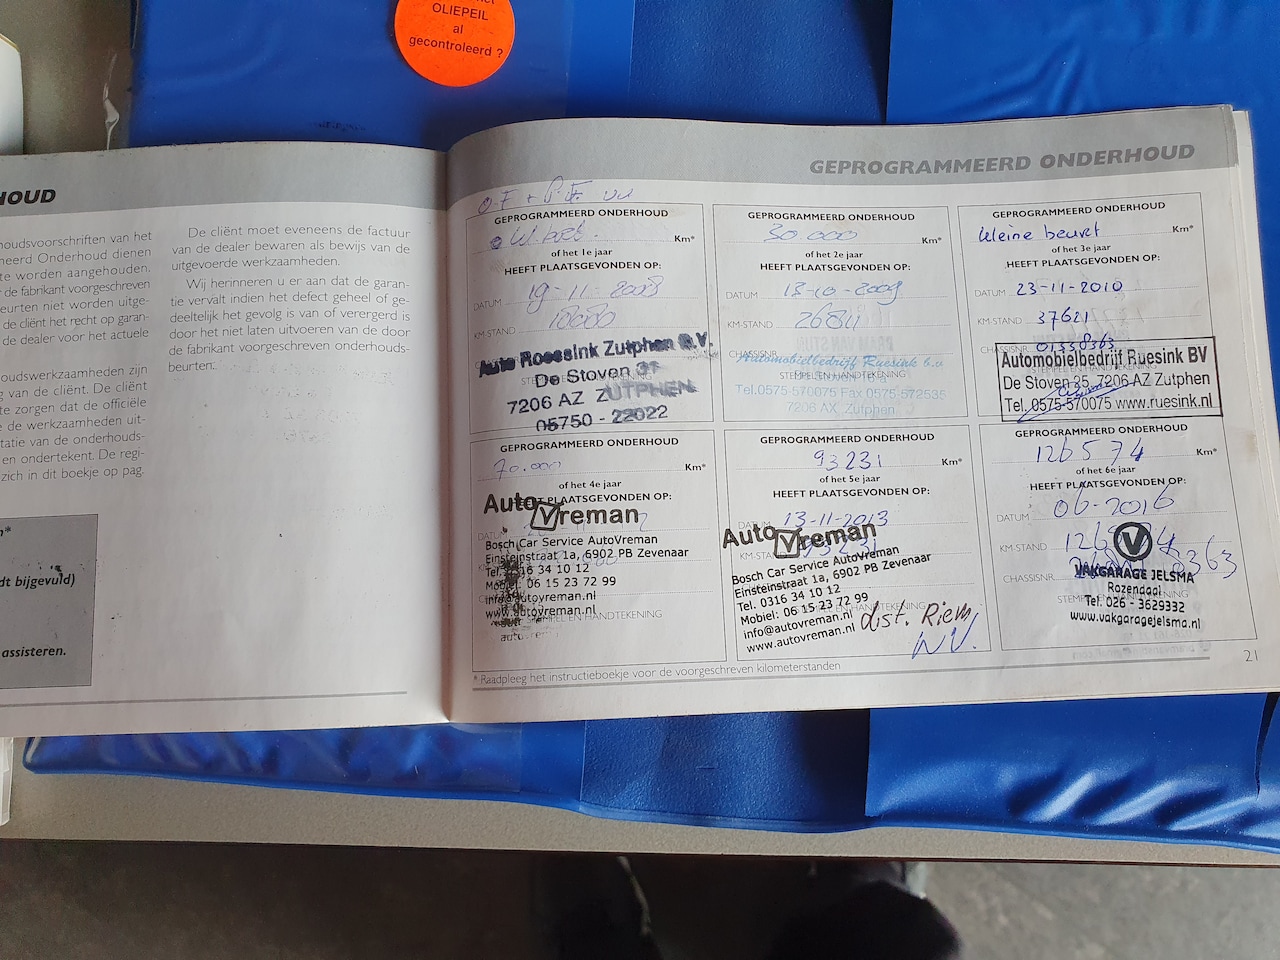 OLIEPEIL
al
gecontroleerd ?
HOUD
houdsvoorschriften van het
meerd Onderhoud dienen
te worden aangehouden.
de fabrikant voorgeschreven
beurten niet worden uitge-
de cliënt het recht op garan-
de dealer voor het actuele
houdswerkzaamheden zijn
van de cliënt. De cliënt
te zorgen dat de officiële
de werkzaamheden uit-
tatie van de onderhouds-
en ondertekent. De regi-
zich in dit boekje op pag.
dt bijgevuld)
assisteren.
De cliënt moet eveneens de factuur
van de dealer bewaren als bewijs van de
uitgevoerde werkzaamheden.
Wij herinneren u er aan dat de garan-
tie vervalt indien het defect geheel of ge-
deeltelijk het gevolg is van of verergerd is
door het niet laten uitvoeren van de door
de fabrikant voorgeschreven onderhouds-
beurten.
GEPROGRAMMEERD ONDERHOUD
GEPROGRAMMEERD ONDERHOUD
Km*
of het 1e jaar
HEEFT PLAATSGEVONDEN OP:
DATUM 19-11-2008
KM-STAND 10000
Auto Roessink Zutphen B.V.
De Stoven 37
7206 AZ ZUTPHEN
05750 - 22022
GEPROGRAMMEERD ONDERHOUD
30.000 Km*
of het 2e jaar
HEEFT PLAATSGEVONDEN OP:
DATUM 13-10-2009
KM-STAND 26811
CHASSISNR.
Automobielbedrijf Ruesink b.v.
STEMPEL EN HANDTEKENING
Tel.0575-570075 Fax 0575-572535
7206 AX Zutphen
GEPROGRAMMEERD ONDERHOUD
kleine beurt Km*
of het 3e jaar
HEEFT PLAATSGEVONDEN OP:
DATUM 23-11-2010
KM-STAND 37621
CHASSISNR. 01338363
Automobielbedrijf Ruesink BV
De Stoven 35, 7206 AZ Zutphen
Tel. 0575-570075 www.ruesink.nl
GEPROGRAMMEERD ONDERHOUD
70.000 Km*
of het 4e jaar
HEEFT PLAATSGEVONDEN OP:
AutoVreman
Bosch Car Service AutoVreman
Einsteinstraat 1a, 6902 PB Zevenaar
Tel. 0316 34 10 12
Mobiel: 06 15 23 72 99
info@autovreman.nl
www.autovreman.nl
STEMPEL EN HANDTEKENING
GEPROGRAMMEERD ONDERHOUD
93231 Km*
of het 5e jaar
HEEFT PLAATSGEVONDEN OP:
DATUM 13-11-2013
KM-STAND 93231
AutoVreman
Bosch Car Service AutoVreman
Einsteinstraat 1a, 6902 PB Zevenaar
Tel. 0316 34 10 12
Mobiel: 06 15 23 72 99
info@autovreman.nl
www.autovreman.nl
dist. Riem
NV!
GEPROGRAMMEERD ONDERHOUD
126574 Km*
of het 6e jaar
HEEFT PLAATSGEVONDEN OP:
DATUM 06-2016
KM-STAND
CHASSISNR. 8363
VAKGARAGE JELSMA
Rozendaal
Tel. 026 - 3629332
www.vakgaragejelsma.nl
* Raadpleeg het instructieboekje voor de voorgeschreven kilometerstanden
21